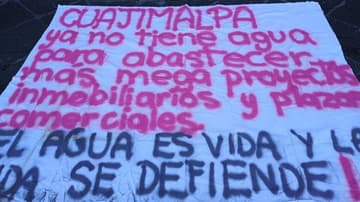 CUAJIMALPA
ya no tiene agua
para abastecer
más mega proyectos
inmobiliarios y plazas
comerciales
EL AGUA ES VIDA Y LA
VIDA SE DEFIENDE!